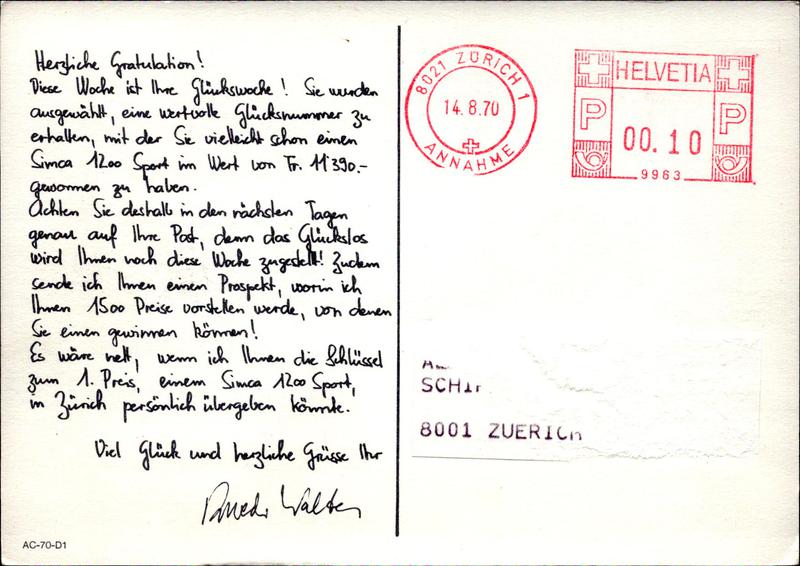 Herzliche Gratulation!
Diese Woche ist Ihre Glückswoche! Sie wurden
ausgewählt, eine wertvolle Glücksnummer zu
erhalten, mit der Sie vielleicht schon einen
Simca 1200 Sport im Wert von Fr. 11'390.-
gewonnen zu haben.
Achten Sie deshalb in den nächsten Tagen
genau auf Ihre Post, denn das Glückslos
wird Ihnen noch diese Woche zugestellt! Zudem
sende ich Ihnen einen Prospekt, worin ich
Ihnen 1500 Preise vorstellen werde, von denen
Sie einen gewinnen können!
Es wäre nett, wenn ich Ihnen die Schlüssel
zum 1. Preis, einem Simca 1200 Sport,
in Zürich persönlich übergeben könnte.
Viel Glück und herzliche Grüsse Ihr
Walter
AC-70-D1
8021 ZÜRICH 1
14.8.70
ANNAHME
HELVETIA
P
00.10
P
9963
8001 ZUERICH